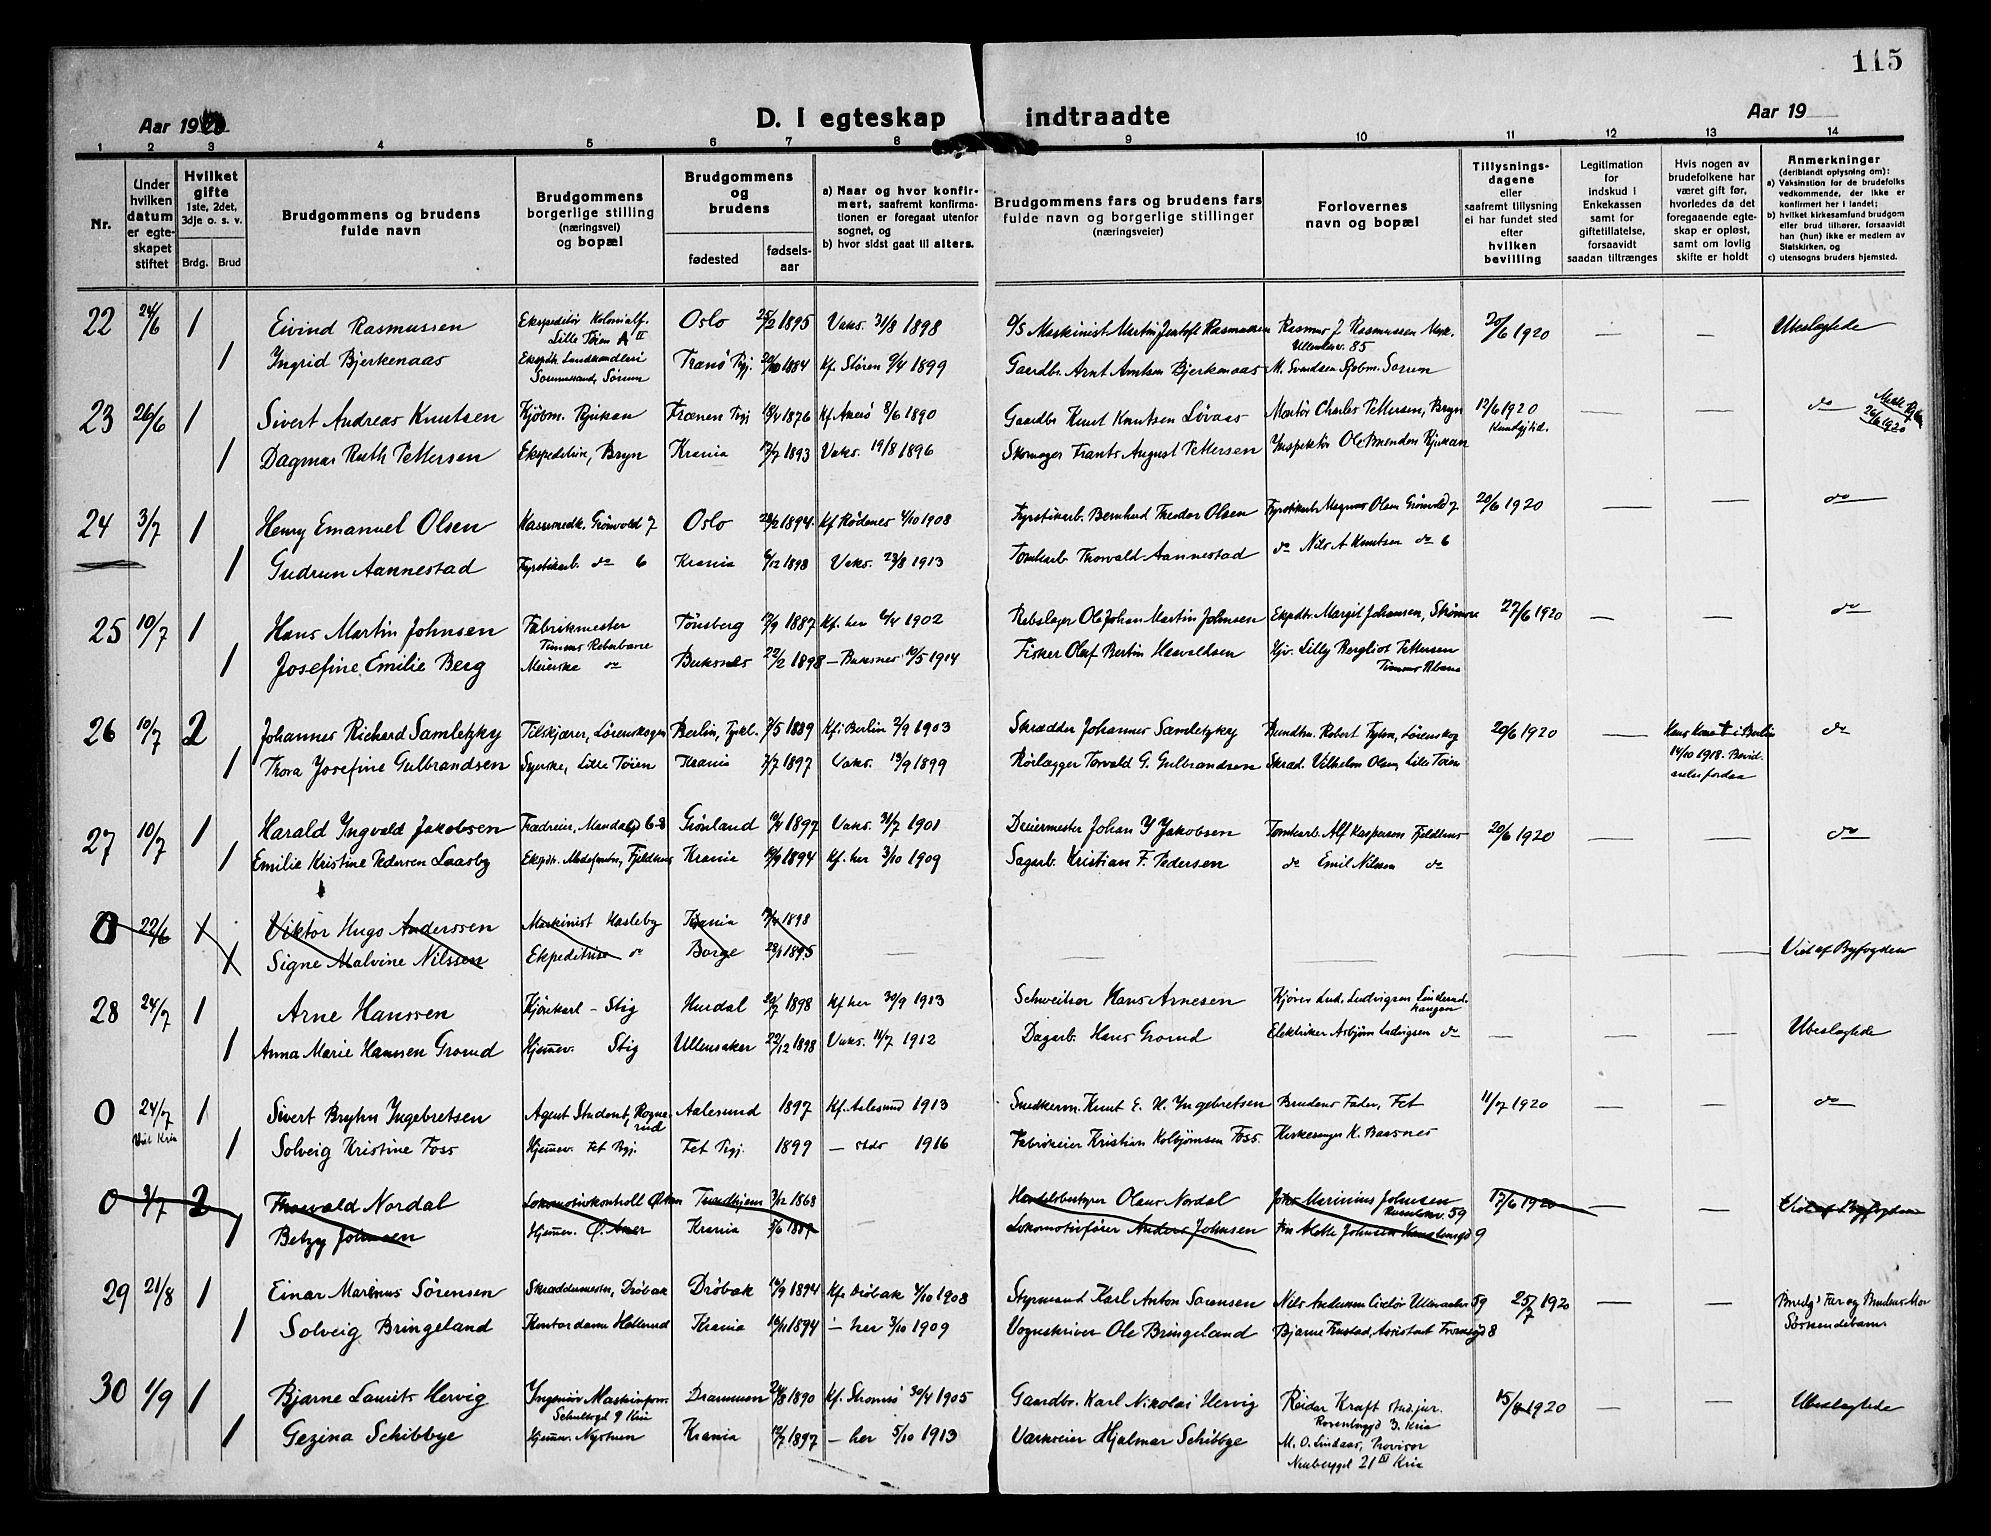 115
Aar 1920 D. I egteskap indtraadte Aar 19
1 2 3 4 5 6 7 8 9 10 11 12 13 14
Nr.
Under hvilken datum er egteskapet stiftet
Hvilket gifte 1ste, 2det, 3dje o. s. v.
Brdg. Brud
Brudgommens og brudens fulde navn
Brudgommens borgerlige stilling (næringsvei) og bopæl
Brudgommens og brudens
fødested fødselsaar
a) Naar og hvor konfirmert, saafremt konfirmationen er foregaat utenfor sognet, og
b) hvor sidst gaat til alters.
Brudgommens fars og brudens fars fulde navn og borgerlige stillinger (næringsveier)
Forlovernes navn og bopæl
Tillysningsdagene eller saafremt tillysning ei har fundet sted efter hvilken bevilling
Legitimation for indskud i Enkekassen samt for giftetillatelse, forsaavidt saadan tiltrænges
Hvis nogen av brudefolkene har været gift før, hvorledes da det foregaaende egteskap er opløst, samt om lovlig skifte er holdt
Anmerkninger (deriblandt oplysning om):
a) Vaksination for de brudefolks vedkommende, der ikke er konfirmert her i landet;
b) hvilket kirkesamfund brudgom eller brud tilhører, forsaavidt han (hun) ikke er medlem av Statskirken, og
c) utensogns bruders hjemsted.
22 24/6 1 Eivind Rasmussen Ekspeditør Kolonialf. Lille Tøien Oslo 25/2 1895 Vaks. 31/8 1898 D/S Maskinist Martin Jentoft Rasmussen Rasmus J Rasmussen Mask. 85 20/6 1920 — — Ubeslegtede
1 Ingrid Bjerkenaas Ekspdtr. Landhandleri Sørumsand, Sørum Tranø Pgj. 20/10 1884 Kf. Støren 9/4 1899 Gaardbr. Arnt Arntsen Bjerkenaas M. Svendsen Sørum
23 26/6 1 Sivert Andreas Knutsen Kjøbm. Rjukan Frænen Pgj 18/4 1876 Kf. Akerø 8/6 1890 Gaardbr. Knut Knutsen Løvaas Montør Charles Pettersen, Bryn 12/6 1920 — — do 26/6 1920
1 Dagmar Ruth Pettersen Ekspeditrise, Bryn Krania 13/7 1893 Vaks. 19/8 1896 Skomager Frants August Pettersen Inspektør Ole Rjukan
24 3/7 1 Henry Emanuel Olsen Grønvold 7 Oslo 28/2 1894 Kf. Rødenes 4/10 1908 Fyrstikarb. Bernhard Theodor Olsen Fyrstikarb. Magnus Olsen Grønvold 7 20/6 1920 — — do
1 Gudrun Aannestad Fyrstikarb. do 6 Krania 6/12 1898 Vaks. 23/8 1913 Tomtearb. Thorvald Aannestad do Nils A Knutsen do 6
25 10/7 1 Hans Martin Johnsen Fabrikmester Timms Reberbane Tønsberg 13/9 1887 Kf. her 6/4 1902 Rebslager Ole Johan Martin Johnsen Ekspdtr. Margit Johansen, 27/6 1920 — — do
1 Josefine Emilie Berg Meierske do Buksnes 22/2 1898 — Buksnes 10/5 1914 Fisker Olaf Bertin Hjv. Lilly Bergliot Pettersen Timms Rbane
26 10/7 2 Johannes Richard Samletzky Tilskjærer, Lørenskogen Berlin, Tyskl. 7/5 1889 Kf. i Berlin 2/9 1903 Skrædder Johannes Samletzky Robert Lørenskog 20/6 1920 — Hans Kone † i Berlin 14/10 1918. do
1 Thora Josefine Gulbrandsen Syerske, Lille Tøien Krania 7/7 1897 Vaks. 13/9 1899 Rørlægger Torvald G. Gulbrandsen Skræd. Vilhelm Olsen, Lille Tøien
27 10/7 1 Harald Ingvald Jakobsen Trædreier, Mandalsgd 6-8 Grønland 10/4 1897 Vaks. 31/7 1901 Dreiermester Johan Y Jakobsen Tomtearb. Alf Kaspersen Fjeldhus 20/6 1920 — — do
1 Emilie Kristine Pedersen Laasby Krania 13/9 1894 Kf. her 3/10 1909 Sagarb. Kristian F. Pedersen do Emil Nilssen do
0 22/6 1 Viktor Hugo Anderssen Maskinist Hasleby Krania 1898
1 Signe Malvine Nilssen Ekspeditrise do Borge 1895 — — — — — — Viet af Byfogden
28 24/7 1 Arne Hanssen Kjørekarl – Stig Hurdal 20/7 1898 Kf. her 30/9 1913 Schweitser Hans Arnesen Ludvigsen Linderudkaugen
1 Anna Marie Hansen Grorud Hjemmev. Stig Ullensaker 22/12 1898 Vaks. 11/7 1912 Dagarb. Hans Grorud Elektriker Asbjørn Ludvigsen do — — — Ubeslegtede
0 24/7 Viet Kria 1 Sivert Bryhn Ingebretsen Agent Student, Rognerud Aalesund 1897 Kf. Aalesund 1913 Snedkerm. Knut E. H. Ingebretsen Brudens Fader, Fet 11/7 1920 — — do
1 Solveig Kristine Foss Hjemmev. Fet Pgj. Fet Pgj. 1899 — stds 1916 Fabrikeier Kristian Kolbjørnsen Foss Kirkesanger K. Baasnes
0 3/7 2 Thorvald Nordal Lokomotivkontroll Trondhjem 3/12 1868 — Olaus Nordal Johs Marinius Johnsen 59 17/6 1920 Viet af Byfogden
1 Betzy Johnsen Hjemmev. Ø. Aker Krania 5/6 1887 Lokomotivfører Anders Johnsen Frk Alette Johnsen 9
29 21/8 1 Einar Marinus Sørensen Skræddermester, Drøbak Drøbak 16/9 1894 Kf. Drøbak 4/10 1908 Styrmand Karl Anton Sørensen Nils Andersen 59 25/7 1920 — — Brudg's Far og Brudens Mor Søskendebarn.
1 Solveig Bringeland Kontordame Krania 16/11 1894 — her 3/10 1909 Vognskriver Ole Bringeland Bjarne Finstad, Assistent 8
30 1/9 1 Bjarne Laurits Hervig Ingeniør Schultzgd 9 Kria Drammen 24/8 1890 Kf. Strømsø 30/4 1905 Gaardbr. Karl Nikolai Hervig Reidar Kraft stud. jur. Rosenborggd 3. Kria 15/8 1920 — — Ubeslegtede
1 Gezina Schibbye Hjemmev. Nystuen Krania 12/7 1897 — her 5/10 1913 Værkeier Hjalmar Schibbye M. O. Lindaas, Provisor Neuberggd 21 IV Kria